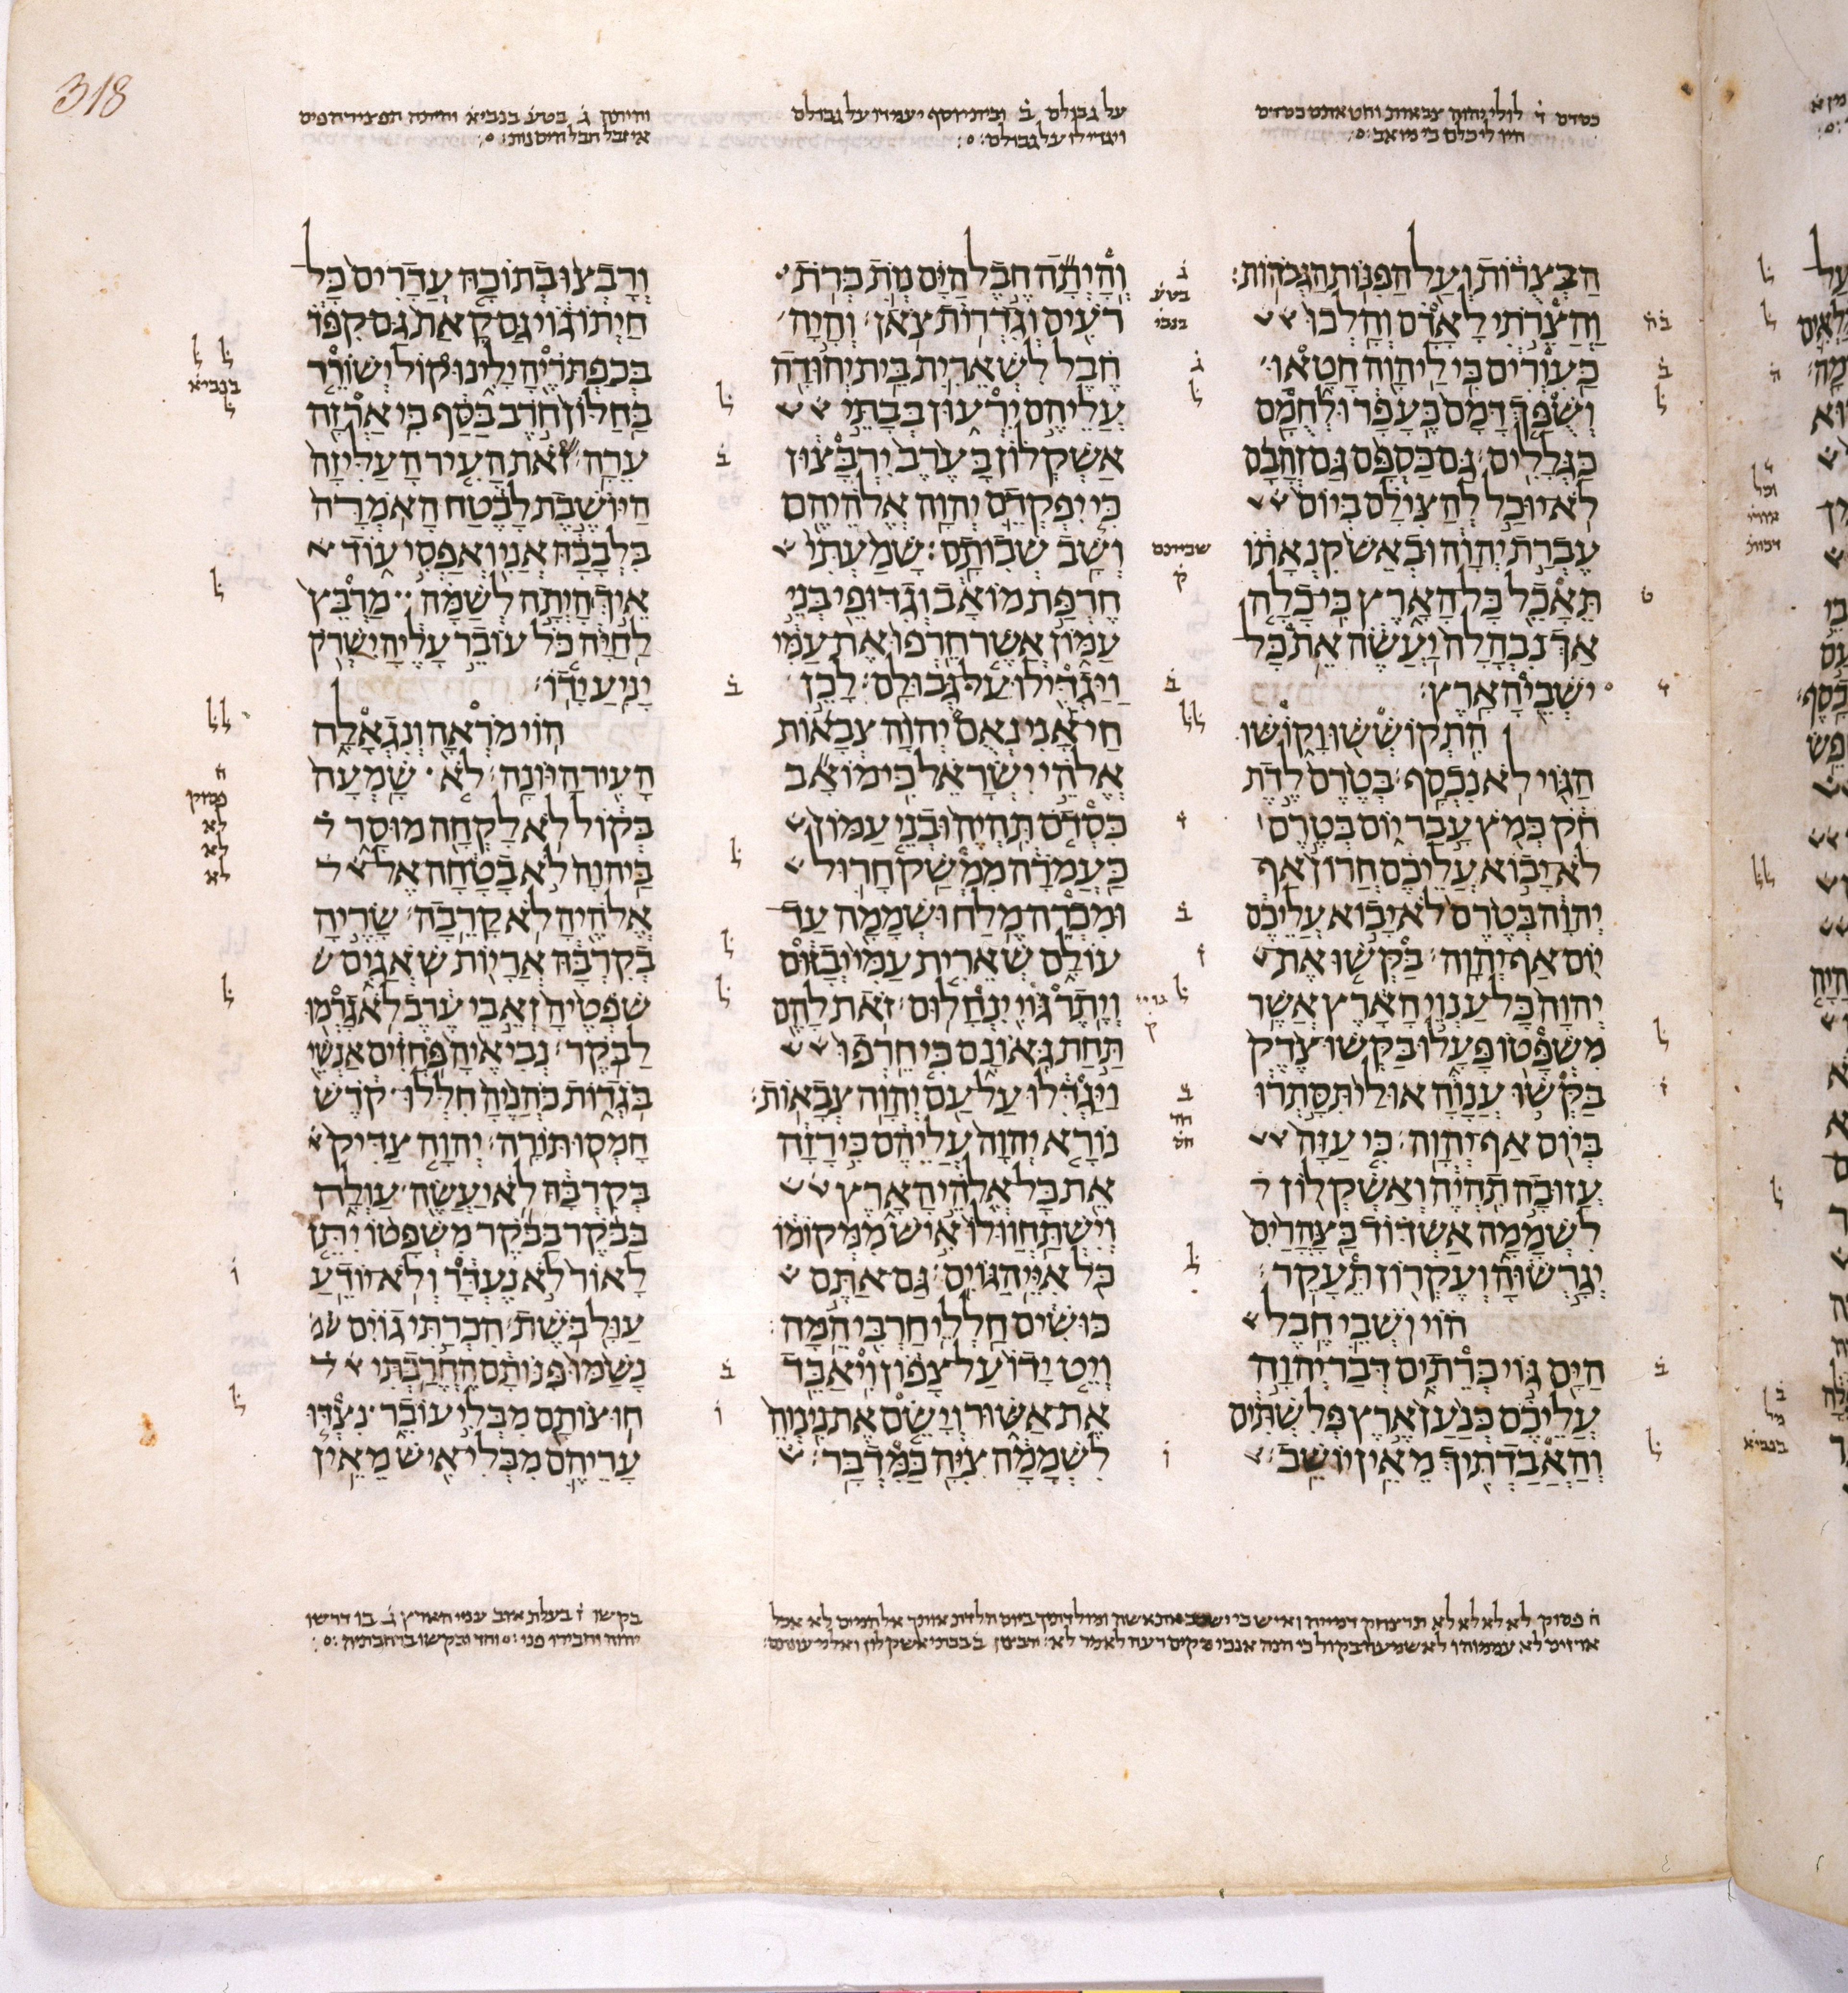 318
כסדם ד לולי יהוה צבאות וחטאתם כסדום
היו לי כלם כי מואב
על גבולם ב ובית יוסף יעמדו על גבולם
ויגדילו על גבולם
ג בטע בנביא והיתה הפצירה פים
איזבל חבל הים נות
הבצרות ועל הפנות הגבהות׃
והצרתי לאדם והלכו
כעורים כי ליהוה חטאו
ושפך דמם כעפר ולחמם
כגללים׃ גם כספם גם זהבם
לא יוכל להצילם ביום
עברת יהוה ובאש קנאתו
תאכל כל הארץ כי כלה
אך נבהלה יעשה את כל
ישבי הארץ׃
התקוששו וקושו
הגוי לא נכסף׃ בטרם לדת
חק כמץ עבר יום בטרם
לא יבוא עליכם חרון אף
יהוה בטרם לא יבוא עליכם
יום אף יהוה׃ בקשו את
יהוה כל ענוי הארץ אשר
משפטו פעלו בקשו צדק
בקשו ענוה אולי תסתרו
ביום אף יהוה׃ כי עזה
עזובה תהיה ואשקלון
לשממה אשדוד בצהרים
יגרשוה ועקרון תעקר׃
הוי ישבי חבל
הים גוי כרתים דבר יהוה
עליכם כנען ארץ פלשתים
והאבדתיך מאין יושב׃
והיתה חבל הים נות כרת
רעים וגדרות צאן׃ והיה
חבל לשארית בית יהודה
עליהם ירעון בבתי
אשקלון בערב ירבצון
כי יפקדם יהוה אלהיהם
ושב שבותם׃ שמעתי
חרפת מואב וגדופי בני
עמון אשר חרפו את עמי
ויגדילו על גבולם׃ לכן
חי אני נאם יהוה צבאות
אלהי ישראל כי מואב
כסדם תהיה ובני עמון
כעמרה ממשק חרול
ומכרה מלח ושממה עד
עולם שארית עמי יבזום
ויתר גוי ינחלום׃ זאת להם
תחת גאונם כי חרפו
ויגדלו על עם יהוה צבאות׃
נורא יהוה עליהם כי רזה
את כל אלהי הארץ
וישתחוו לו איש ממקומו
כל איי הגוים׃ גם אתם
כושים חללי חרבי המה׃
ויט ידו על צפון ויאבד
את אשור וישם את נינוה
לשממה ציה כמדבר׃
ורבצו בתוכה עדרים כל
חיתו גוי גם קאת גם קפד
בכפתריה ילינו קול ישורר
בחלון חרב בסף כי ארזה
ערה׃ זאת העיר העליזה
היושבת לבטח האמרה
בלבבה אני ואפסי עוד
איך היתה לשמה מרבץ
לחיה כל עובר עליה ישרק
יניע ידו׃
הוי מראה ונגאלה
העיר היונה׃ לא שמעה
בקול לא לקחה מוסר
ביהוה לא בטחה אל
אלהיה לא קרבה׃ שריה
בקרבה אריות שאגים
שפטיה זאבי ערב לא גרמו
לבקר׃ נביאיה פחזים אנשי
בגדות כהניה חללו קדש
חמסו תורה׃ יהוה צדיק
בקרבה לא יעשה עולה
בבקר בבקר משפטו יתן
לאור לא נעדר ולא יודע
עול בשת׃ הכרתי גוים
נשמו פנותם החרבתי
חוצותם מבלי עובר נצדו
עריהם מבלי איש מאין
בקשו ז בעלת אוב ענוי הארץ ב בו דרשו
יהוה וחבירו פני וחד ובקשו ברחבותיה